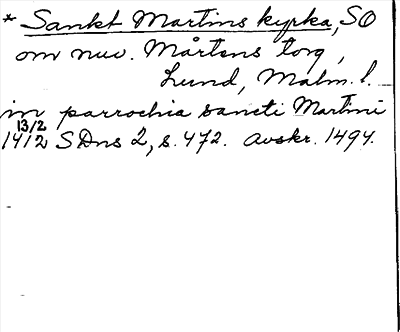 * Sankt Martins kyrka, SO
om nuv. Mårtens torg,
Lund, Malm. l.
in parrochia sancti Martini
13/2
1412 SDns 2, s. 472. Avskr. 1494.